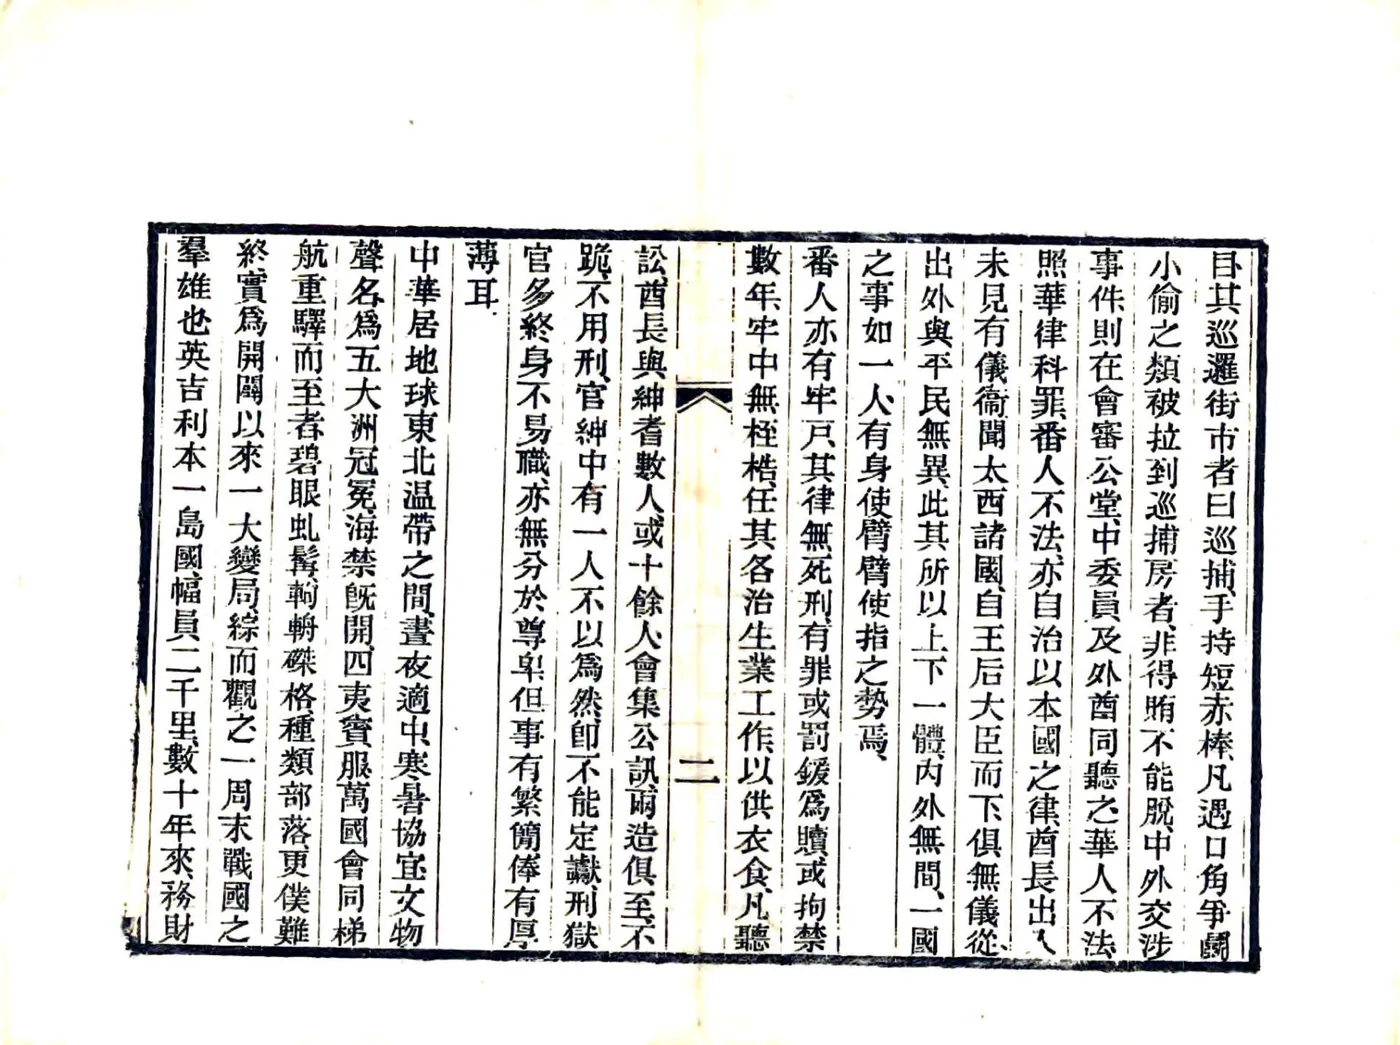 目其巡邏街市者曰巡捕、手持短赤棒、凡遇口角爭鬭
小偷之類被拉到巡捕房者、非得賄不能脫、中外交涉
事件、則在會審公堂、中委員及外酋同聽之、華人不法、
照華律科罪、番人不法、亦自治以本國之律、酋長出入
未見有儀衞、聞太西諸國、自王后大臣而下、俱無儀從、
出外與平民無異、此其所以上下一體、內外無間、一國
之事如一人、有身使臂臂使指之勢焉、
番人亦有牢戶、其律無死刑、有罪或罰鍰爲贖、或拘禁
數年、牢中無桎梏、任其各治生業工作、以供衣食、凡聽
二
訟、酋長與紳耆數人、或十餘人、會集公訊、兩造俱至、不
跪、不用刑、官紳中有一人不以爲然、卽不能定讞、刑獄
官多終身不易職、亦無分於尊卑、但事有繁簡俸有厚
薄耳
中華居地球東北温帶之間、晝夜適中、寒暑協宜、文物
聲名、爲五大洲冠冕、海禁旣開、四夷賓服、萬國會同、梯
航重驛而至者、碧眼虬髯、輈輈磔格、種類部落、更僕難
終、實爲開闢以來一大變局、綜而觀之、一周末戰國之
羣雄也、英吉利本一島國、幅員二千里、數十年來、務財